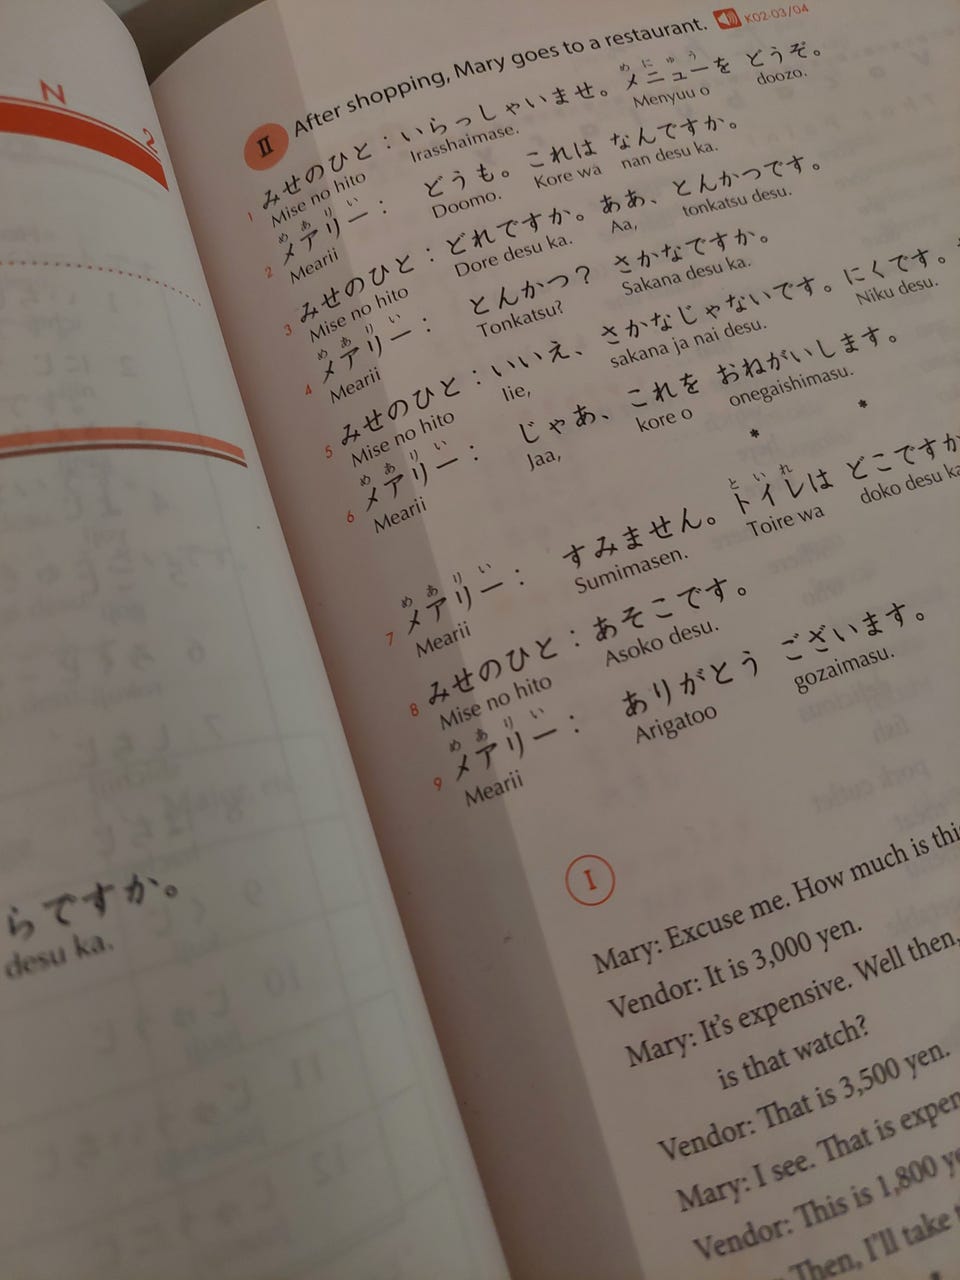 N
2
らですか。
desu ka.
II After shopping, Mary goes to a restaurant. K02-03/04
1 みせのひと：いらっしゃいませ。メニューを どうぞ。
めにゅう
Mise no hito Irasshaimase. Menyuu o doozo.
めありい
2 メアリー： どうも。これは なんですか。
Mearii Doomo. Kore wa nan desu ka.
3 みせのひと：どれですか。ああ、とんかつです。
Mise no hito Dore desu ka. Aa, tonkatsu desu.
めありい
4 メアリー： とんかつ？ さかなですか。
Mearii Tonkatsu? Sakana desu ka.
5 みせのひと：いいえ、さかなじゃないです。にくです。
Mise no hito Iie, sakana ja nai desu. Niku desu.
めありい
6 メアリー： じゃあ、これを おねがいします。
Mearii Jaa, kore o onegaishimasu.
* *
めありい といれ
7 メアリー： すみません。トイレは どこですか
Mearii Sumimasen. Toire wa doko desu ka
8 みせのひと：あそこです。
Mise no hito Asoko desu.
めありい
9 メアリー： ありがとう ございます。
Mearii Arigatoo gozaimasu.
I
Mary: Excuse me. How much is
Vendor: It is 3,000 yen.
Mary: It's expensive. Well then,
is that watch?
Vendor: That is 3,500 yen.
Mary: I see. That is
Vendor: This is 1,800
Then, I'll take